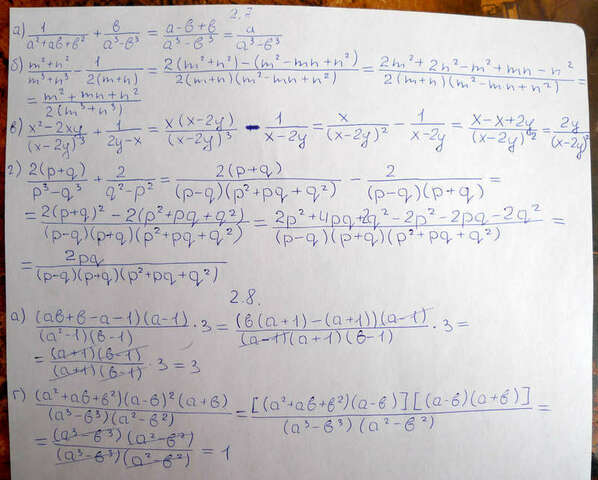 2.7
а) 1/(a²+ab+b²) + b/(a³-b³) = (a-b+b)/(a³-b³) = a/(a³-b³)
б) (m²+n²)/(m³+n³) - 1/(2(m+n)) = (2(m²+n²)-(m²-mn+n²))/(2(m+n)(m²-mn+n²)) = (2m²+2n²-m²+mn-n²)/(2(m+n)(m²-mn+n²)) =
= (m²+mn+n²)/(2(m³+n³))
в) (x²-2xy)/(x-2y)³ + 1/(2y-x) = x(x-2y)/(x-2y)³ - 1/(x-2y) = x/(x-2y)² - 1/(x-2y) = (x-x+2y)/(x-2y)² = 2y/(x-2y)²
г) 2(p+q)/(p³-q³) + 2/(q²-p²) = 2(p+q)/((p-q)(p²+pq+q²)) - 2/((p-q)(p+q)) =
= (2(p+q)²-2(p²+pq+q²))/((p-q)(p+q)(p²+pq+q²)) = (2p²+4pq+2q²-2p²-2pq-2q²)/((p-q)(p+q)(p²+pq+q²)) =
= 2pq/((p-q)(p+q)(p²+pq+q²))
2.8.
а) (ab+b-a-1)(a-1)/((a²-1)(b-1)) · 3 = (b(a+1)-(a+1))(a-1)/((a-1)(a+1)(b-1)) · 3 =
= (a+1)(b-1)/((a+1)(b-1)) · 3 = 3
г) (a²+ab+b²)(a-b)²(a+b)/((a³-b³)(a²-b²)) = [(a²+ab+b²)(a-b)][(a-b)(a+b)]/((a³-b³)(a²-b²)) =
= (a³-b³)(a²-b²)/((a³-b³)(a²-b²)) = 1